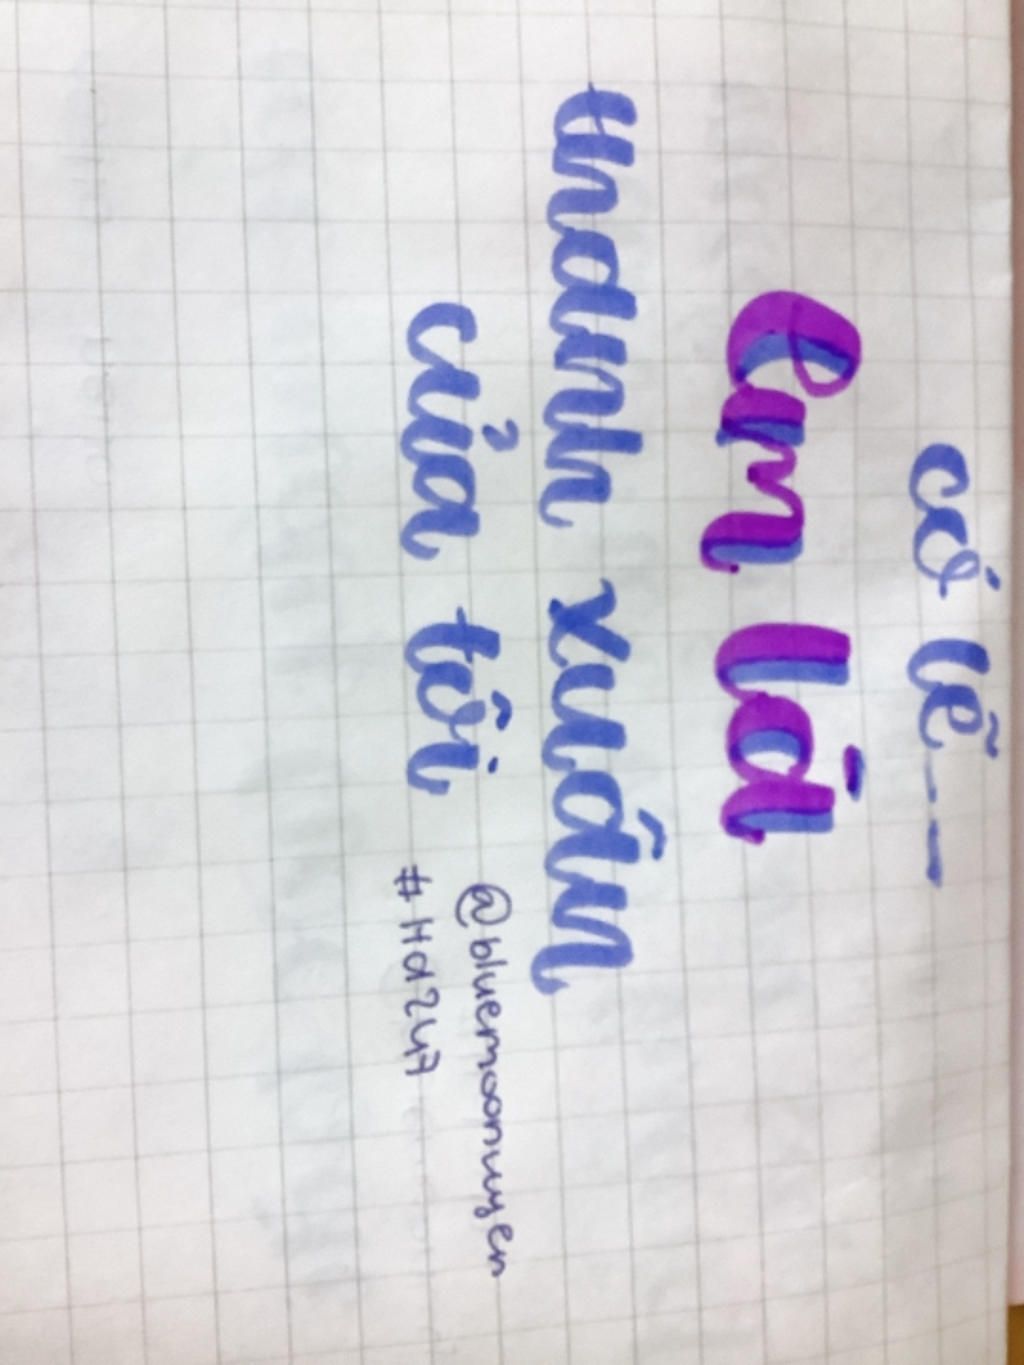 có lẽ ---
Em là
thanh xuân
của tôi
@bluemoonuyen
#Hd247